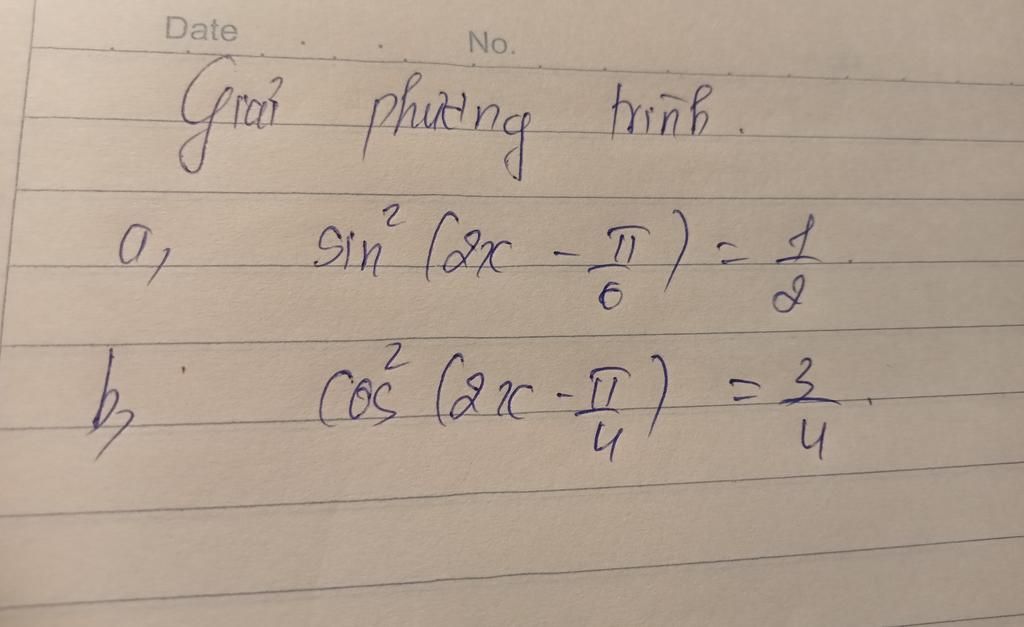 Date No.
Giải phương trình.
a, sin² (2x - π/6) = 1/2.
b, cos² (2x - π/4) = 3/4.